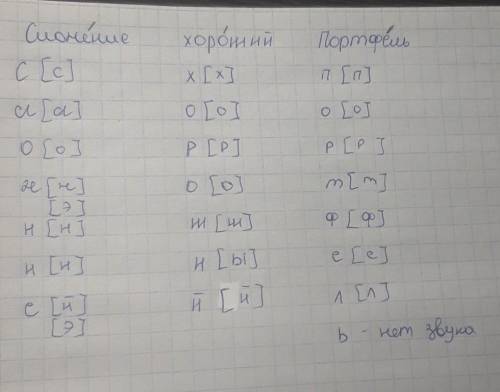 Сложе́ние хоро́ший Портфе́ль
С [с] х [х] п [п]
л [л] о [о] о [о]
о [о] р [р] р [р]
ж [ж] о [о] т [т]
[э]
н [н] ш [ш] ф [ф]
и [и] и [ы] е [е]
е [й] й [й] л [л]
[э]
ь - нет звука